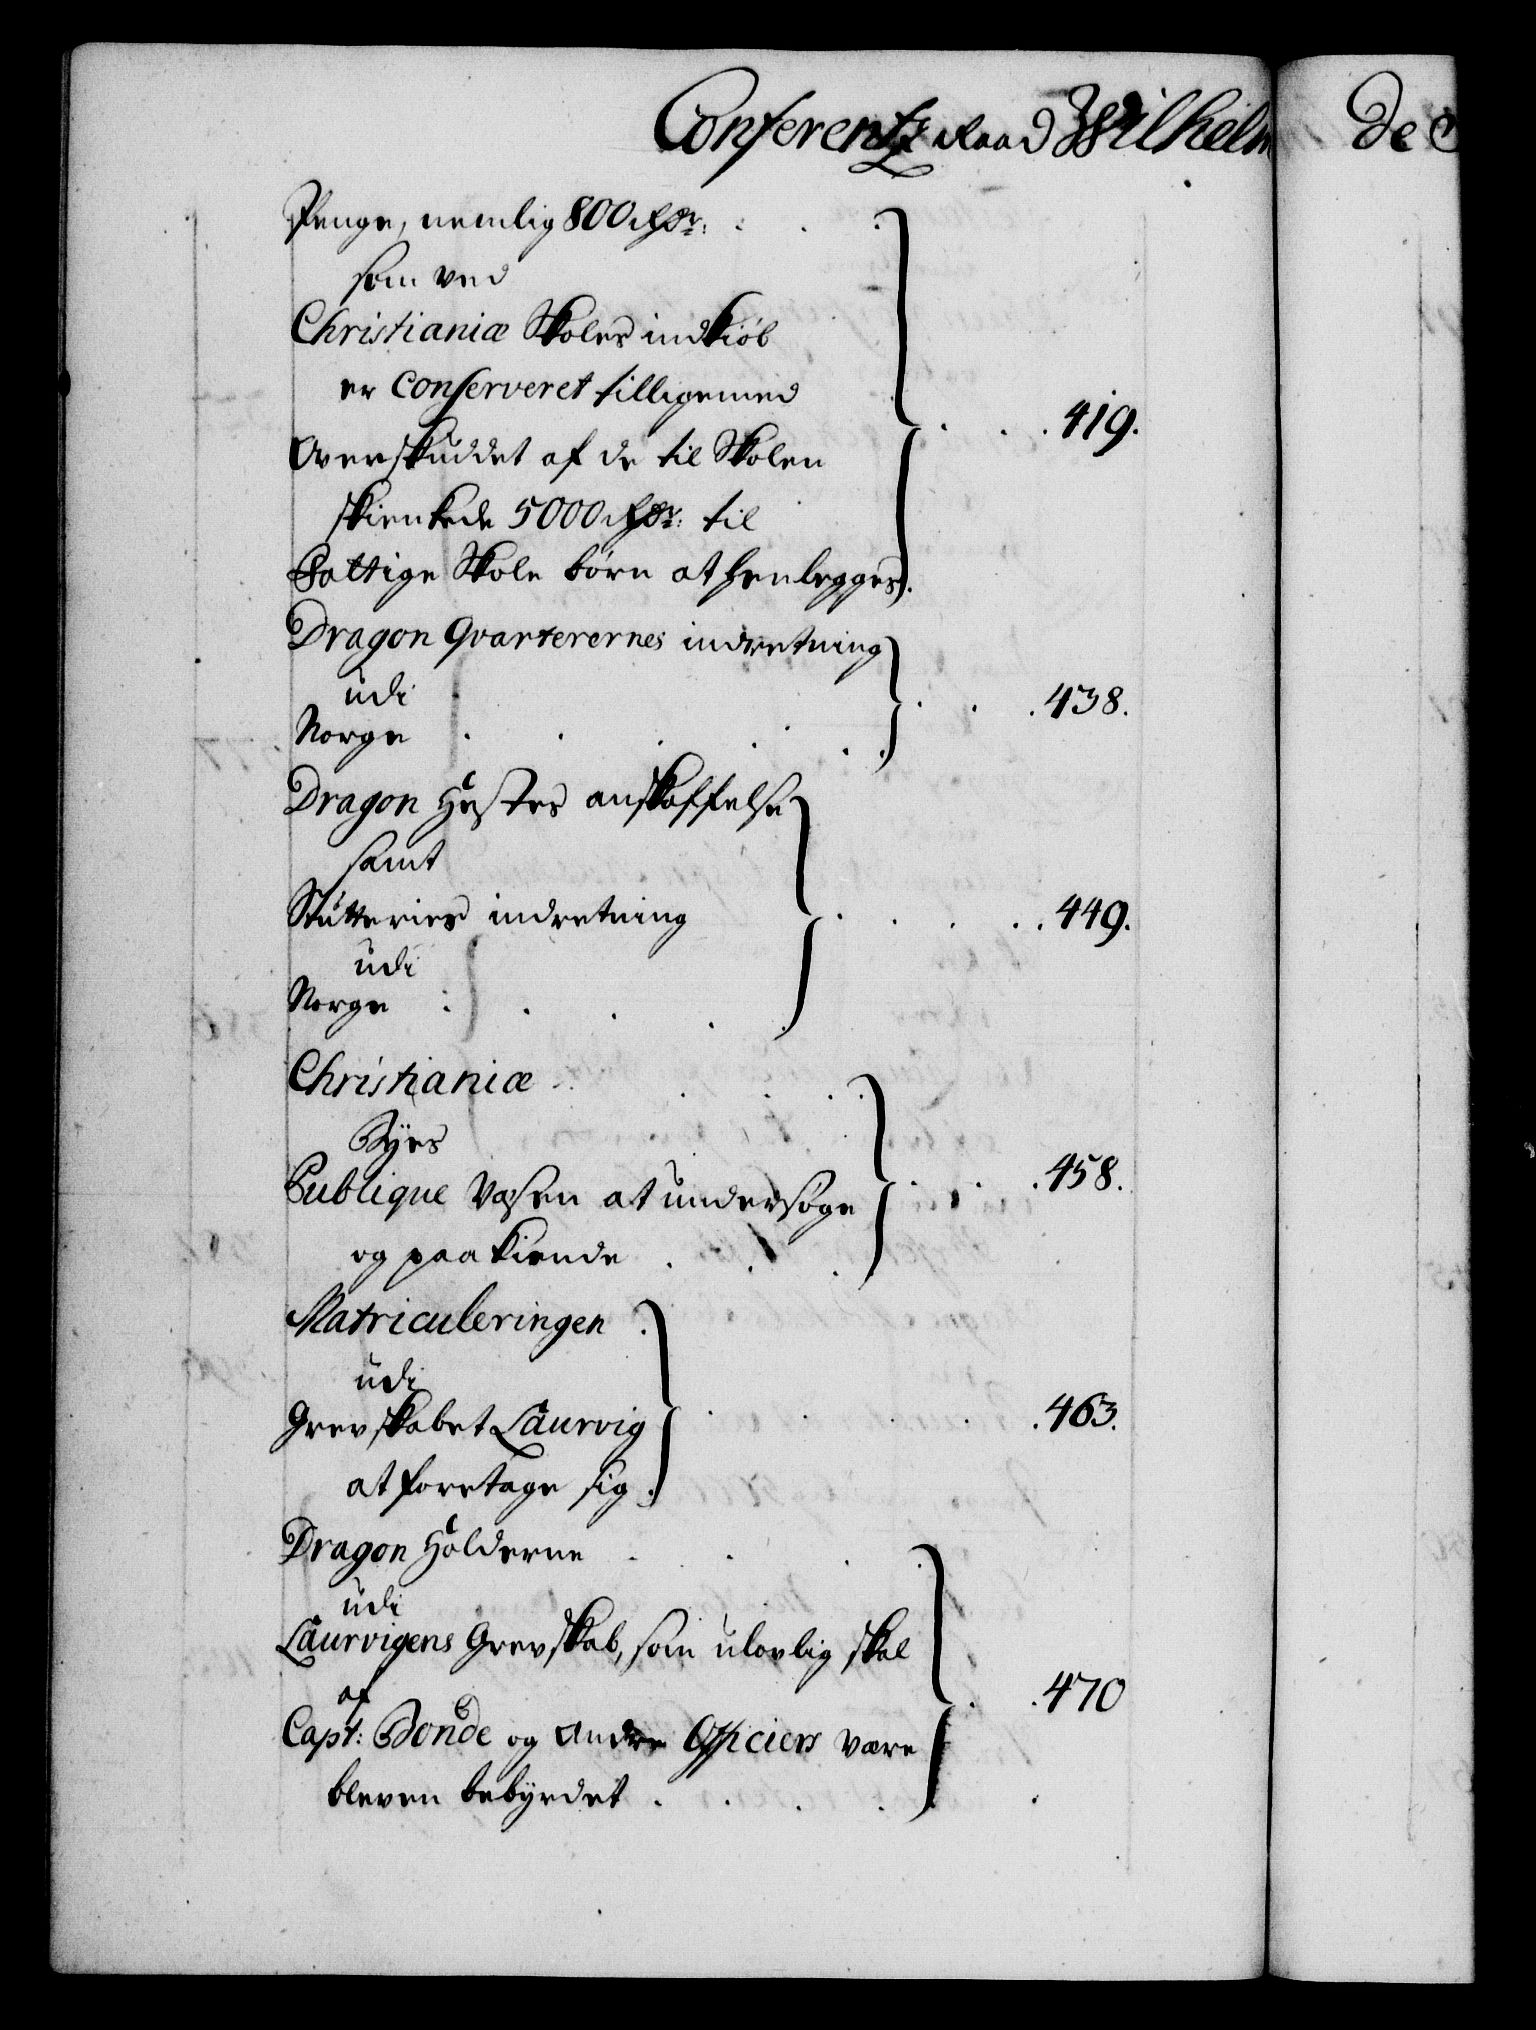 Conferentz Raad Wilhelm
Penge, nemlig 800 Rdr:
som ved
Christianiæ Skoles indkiöb
er Conserveret tilligemed
Overskuddet af de til Skolen
skienkede 5000 Rdr: til
Fattige Skole börn at henlegges. 419.
Dragon Qvarterernes indretning
udi
Norge 438.
Dragon Hestes anskaffelse
samt
Stutteries indretning 449.
udi
Norge
Christianiæ
Byes
Publique Væsen at undersöge 458.
og paakiende
Matriculeringen
udi
Grevskabet Laurvig 463.
at foretage sig
Dragon Holderne
udi
Laurvigens Grevskab, som ulovlig skal
af 470
Capt: Bonde og andre Officiers være
bleven bebyrdet
De